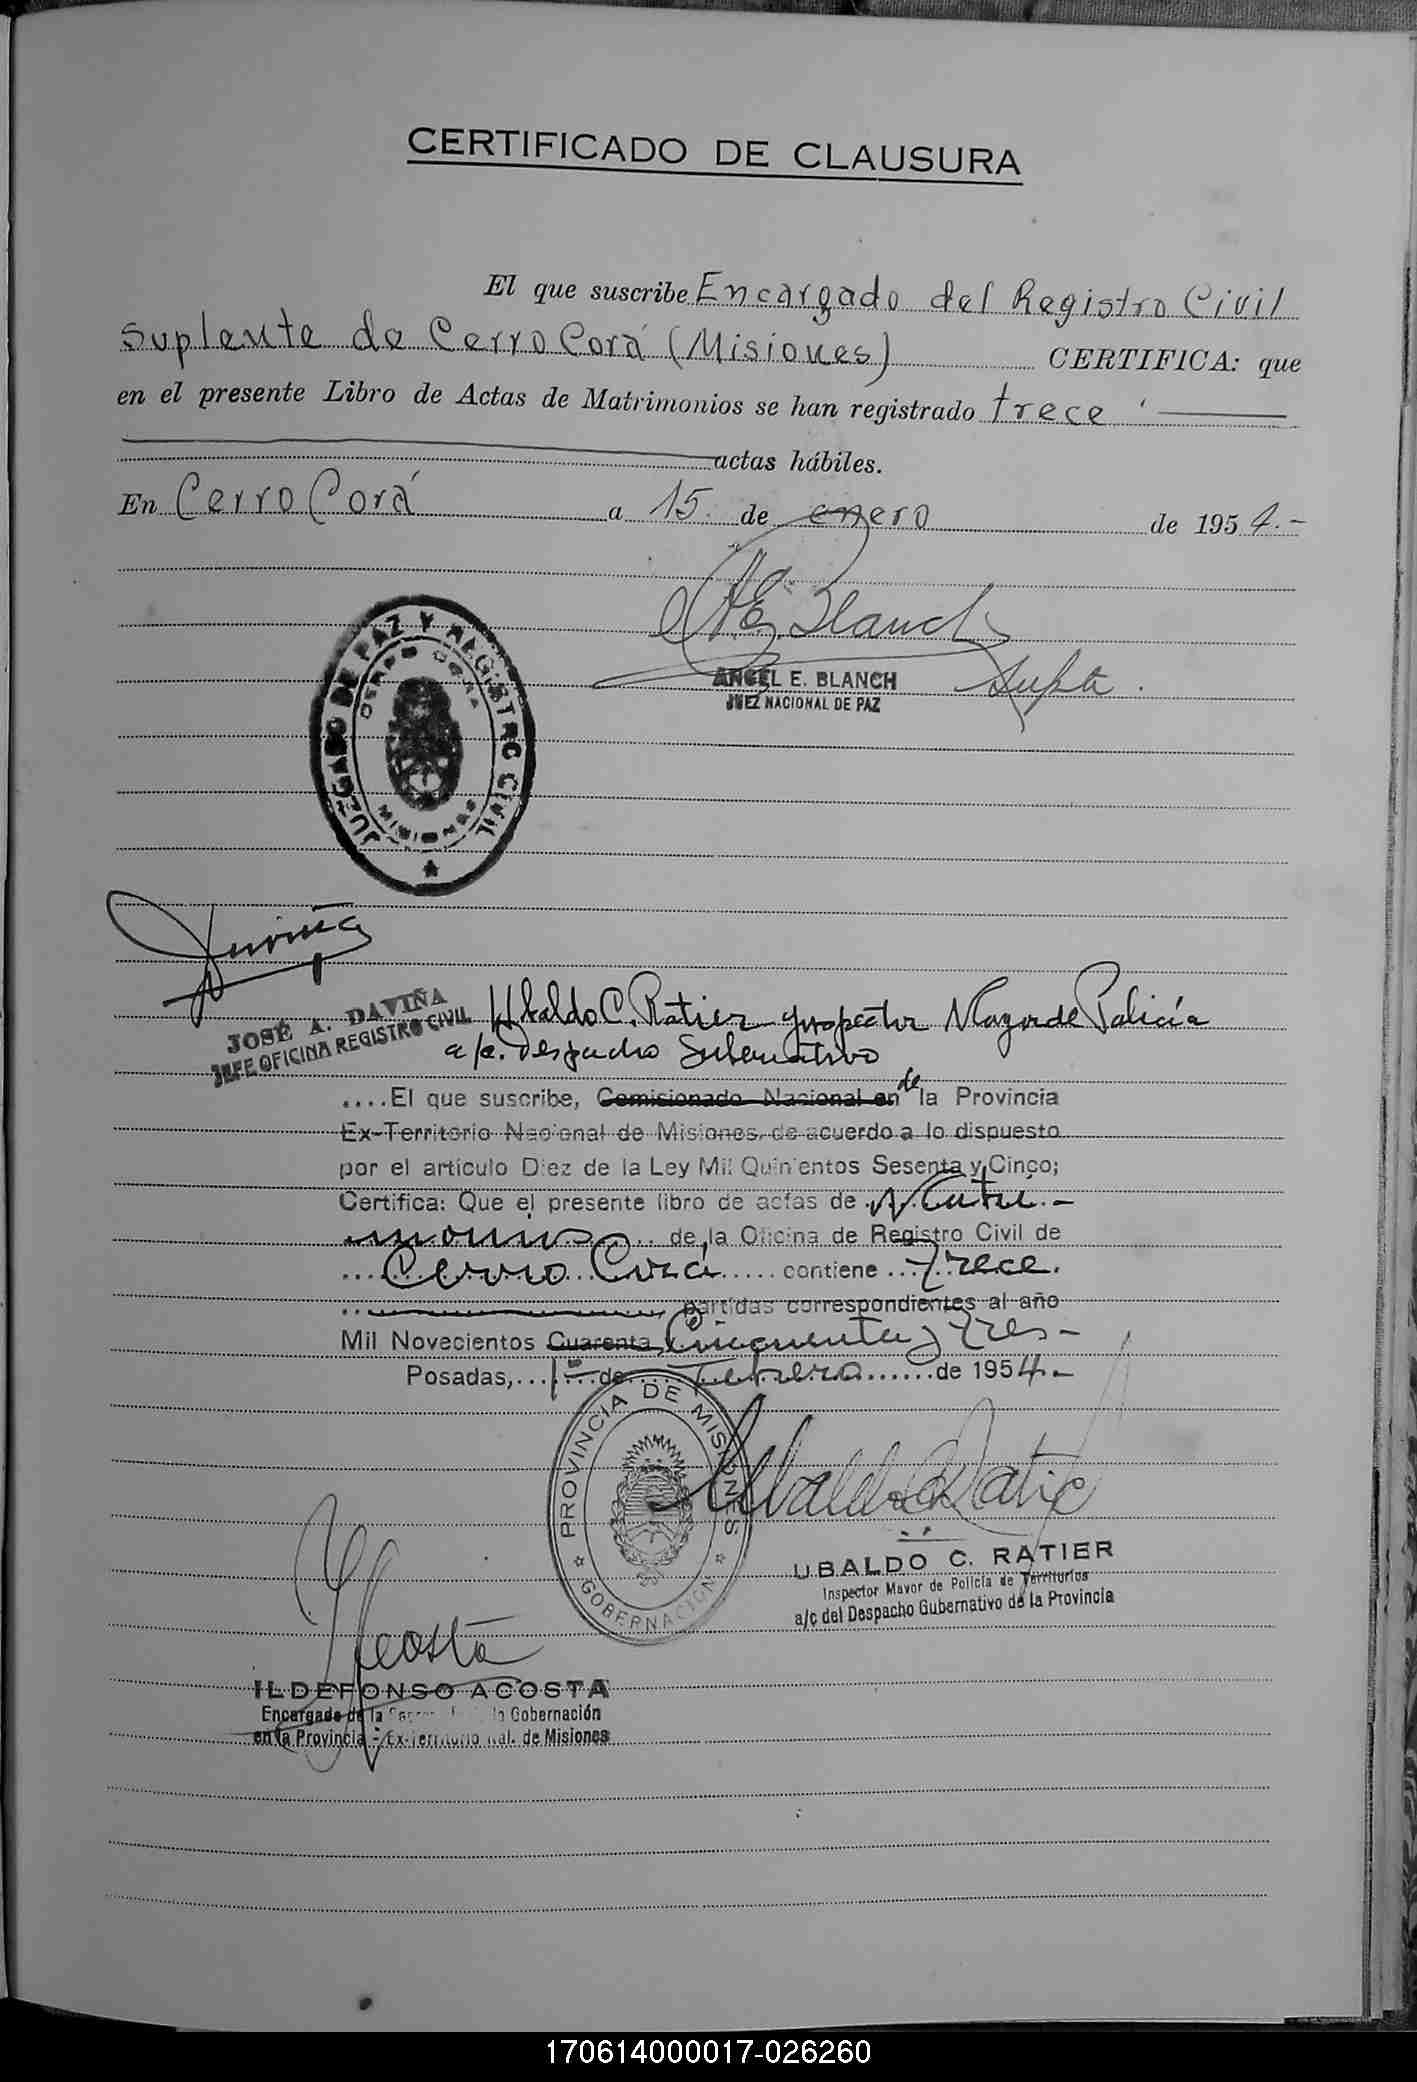 CERTIFICADO DE CLAUSURA
El que suscribe Encargado del Registro Civil
Suplente de Cerro Corá (Misiones) CERTIFICA: que
en el presente Libro de Actas de Matrimonios se han registrado trece
actas hábiles.
En Cerro Corá a 15 de enero de 1954.-
A E. Blanch
ANGEL E. BLANCH Supte.
JUEZ NACIONAL DE PAZ
JUZGADO DE PAZ Y REGISTRO CIVIL
CERRO CORA
MISIONES
Daviña
JOSÉ A. DAVIÑA
JEFE OFICINA REGISTRO CIVIL
Ubaldo C. Ratier Inspector Mayor de Policía
a/c. Despacho Gubernativo
....El que suscribe, Comisionado Nacional en de la Provincia
Ex-Territorio Nacional de Misiones, de acuerdo a lo dispuesto
por el artículo Diez de la Ley Mil Quinientos Sesenta y Cinco;
Certifica: Que el presente libro de actas de Matri-
monios de la Oficina de Registro Civil de
Cerro Corá contiene Trece.
partidas correspondientes al año
Mil Novecientos Cuarenta y Cincuenta y Tres-
Posadas, 1º de Febrero de 1954.-
PROVINCIA DE MISIONES
GOBERNACION
Ubaldo C. Ratier
UBALDO C. RATIER
Inspector Mayor de Policía de Territorios
a/c del Despacho Gubernativo de la Provincia
IAcosta
ILDEFONSO ACOSTA
Encargado de la Gobernación
en la Provincia - Ex-Territorio Nal. de Misiones
170614000017-026260